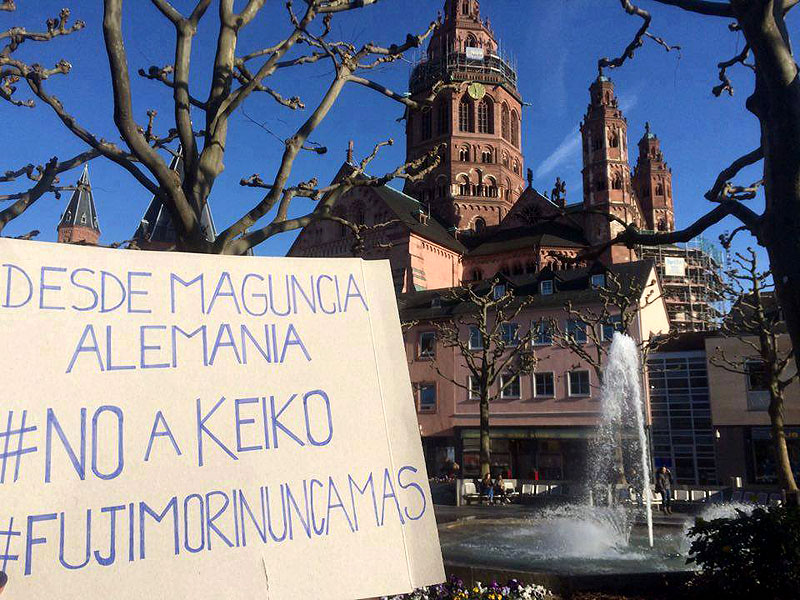 DESDE MAGUNCIA
ALEMANIA
#NO A KEIKO
#FUJIMORINUNCAMAS